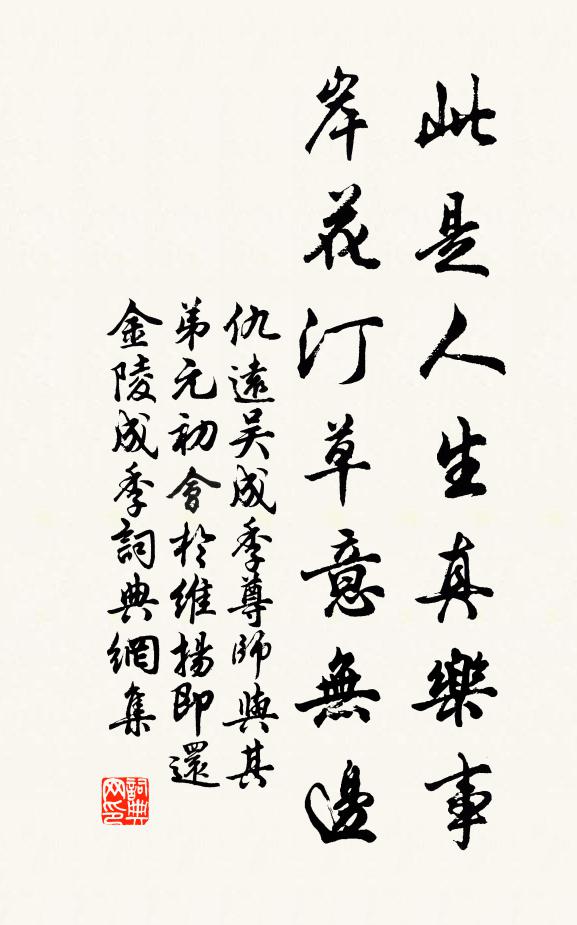 此是人生真樂事
岸花汀草意無邊
仇遠吴成季尊師與其
弟元初會於維揚即還
金陵成季詞典網集
詞典
网印